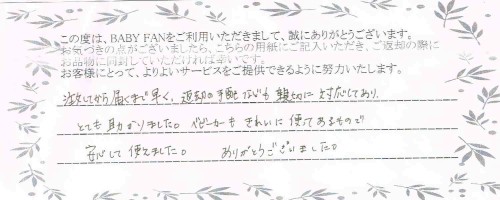 この度は、BABY FANをご利用いただきまして、誠にありがとうございます。
お気づきの点がございましたら、こちらの用紙にご記入いただき、ご返却の際に
お品物に同封していただければ幸いです。
お客様にとって、よりよいサービスをご提供できるように努力いたします。
注文してから届くまで早く、返却の手配なども親切に対応しており
とても助かりました。ベビーカーもきれいに使ってあるもので
安心して使えました。ありがとうございました。